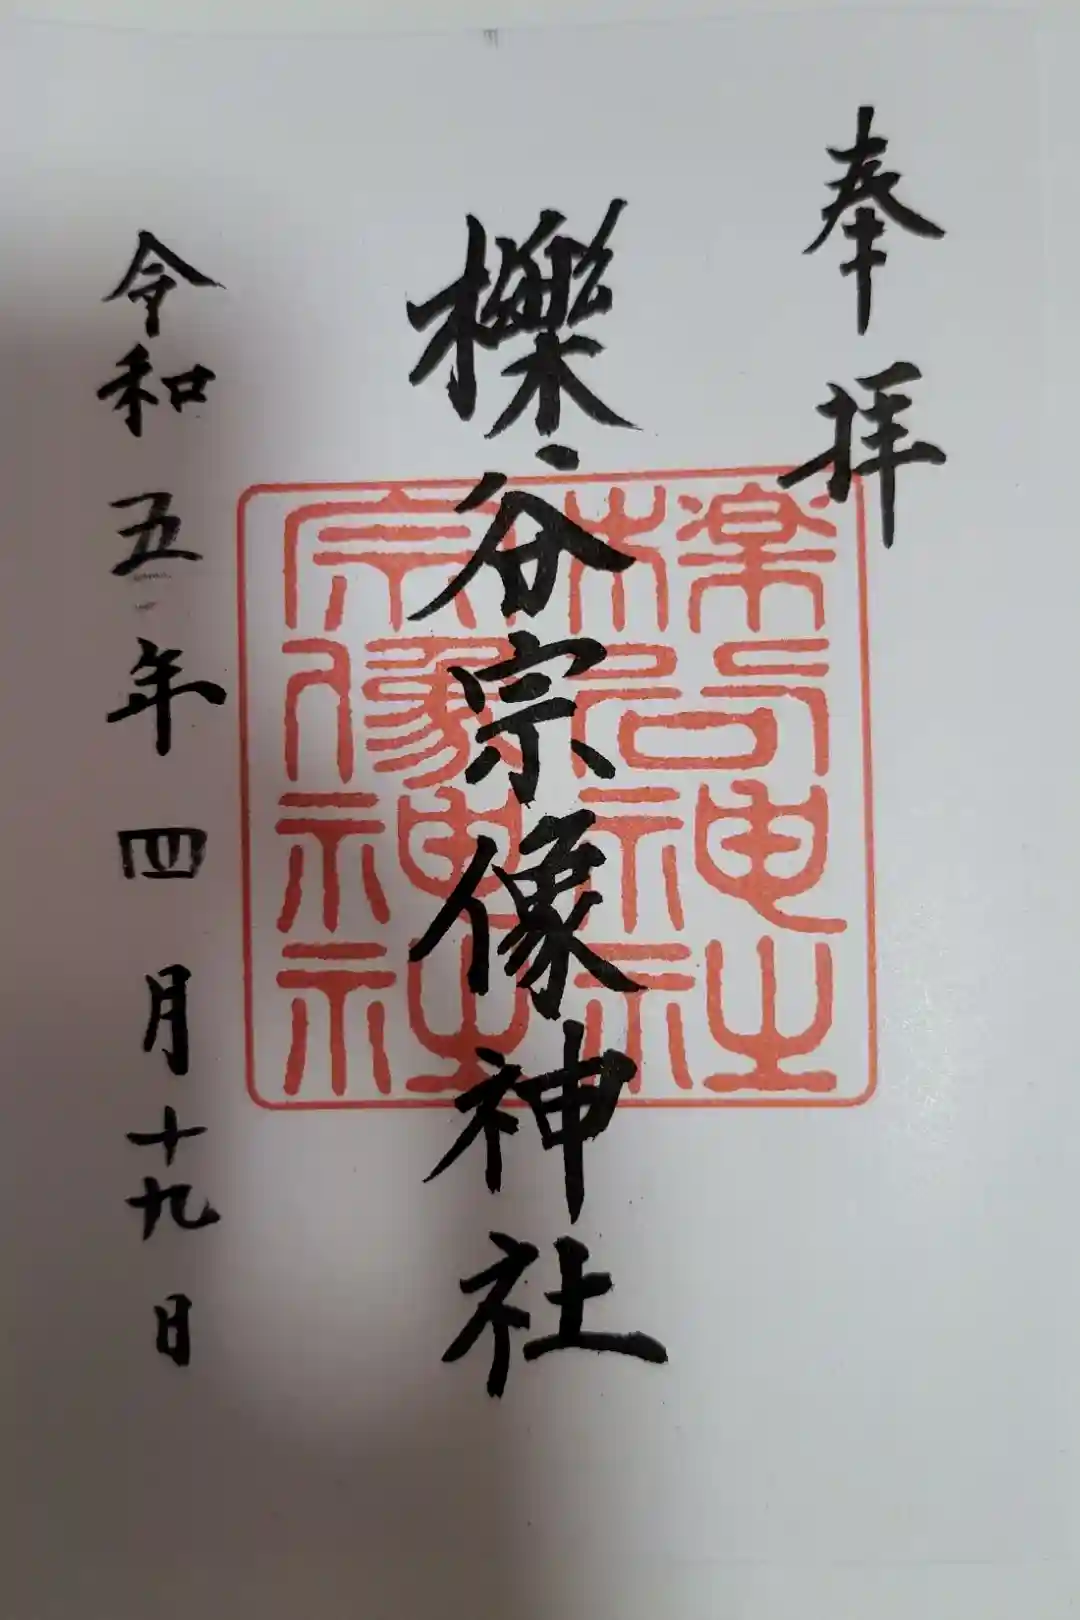 奉拝
櫟谷宗像神社
令和五年四月十九日
櫟谷神社
宗像神社